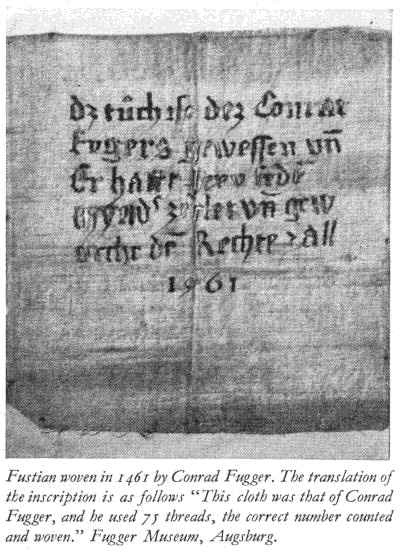 dz tůch ist dez Conrat
Fugers gewessen vn̄
Er hatt
vn̄ gew
dē Rechte zall
1961
Fustian woven in 1461 by Conrad Fugger. The translation of
the inscription is as follows "This cloth was that of Conrad
Fugger, and he used 75 threads, the correct number counted
and woven." Fugger Museum, Augsburg.